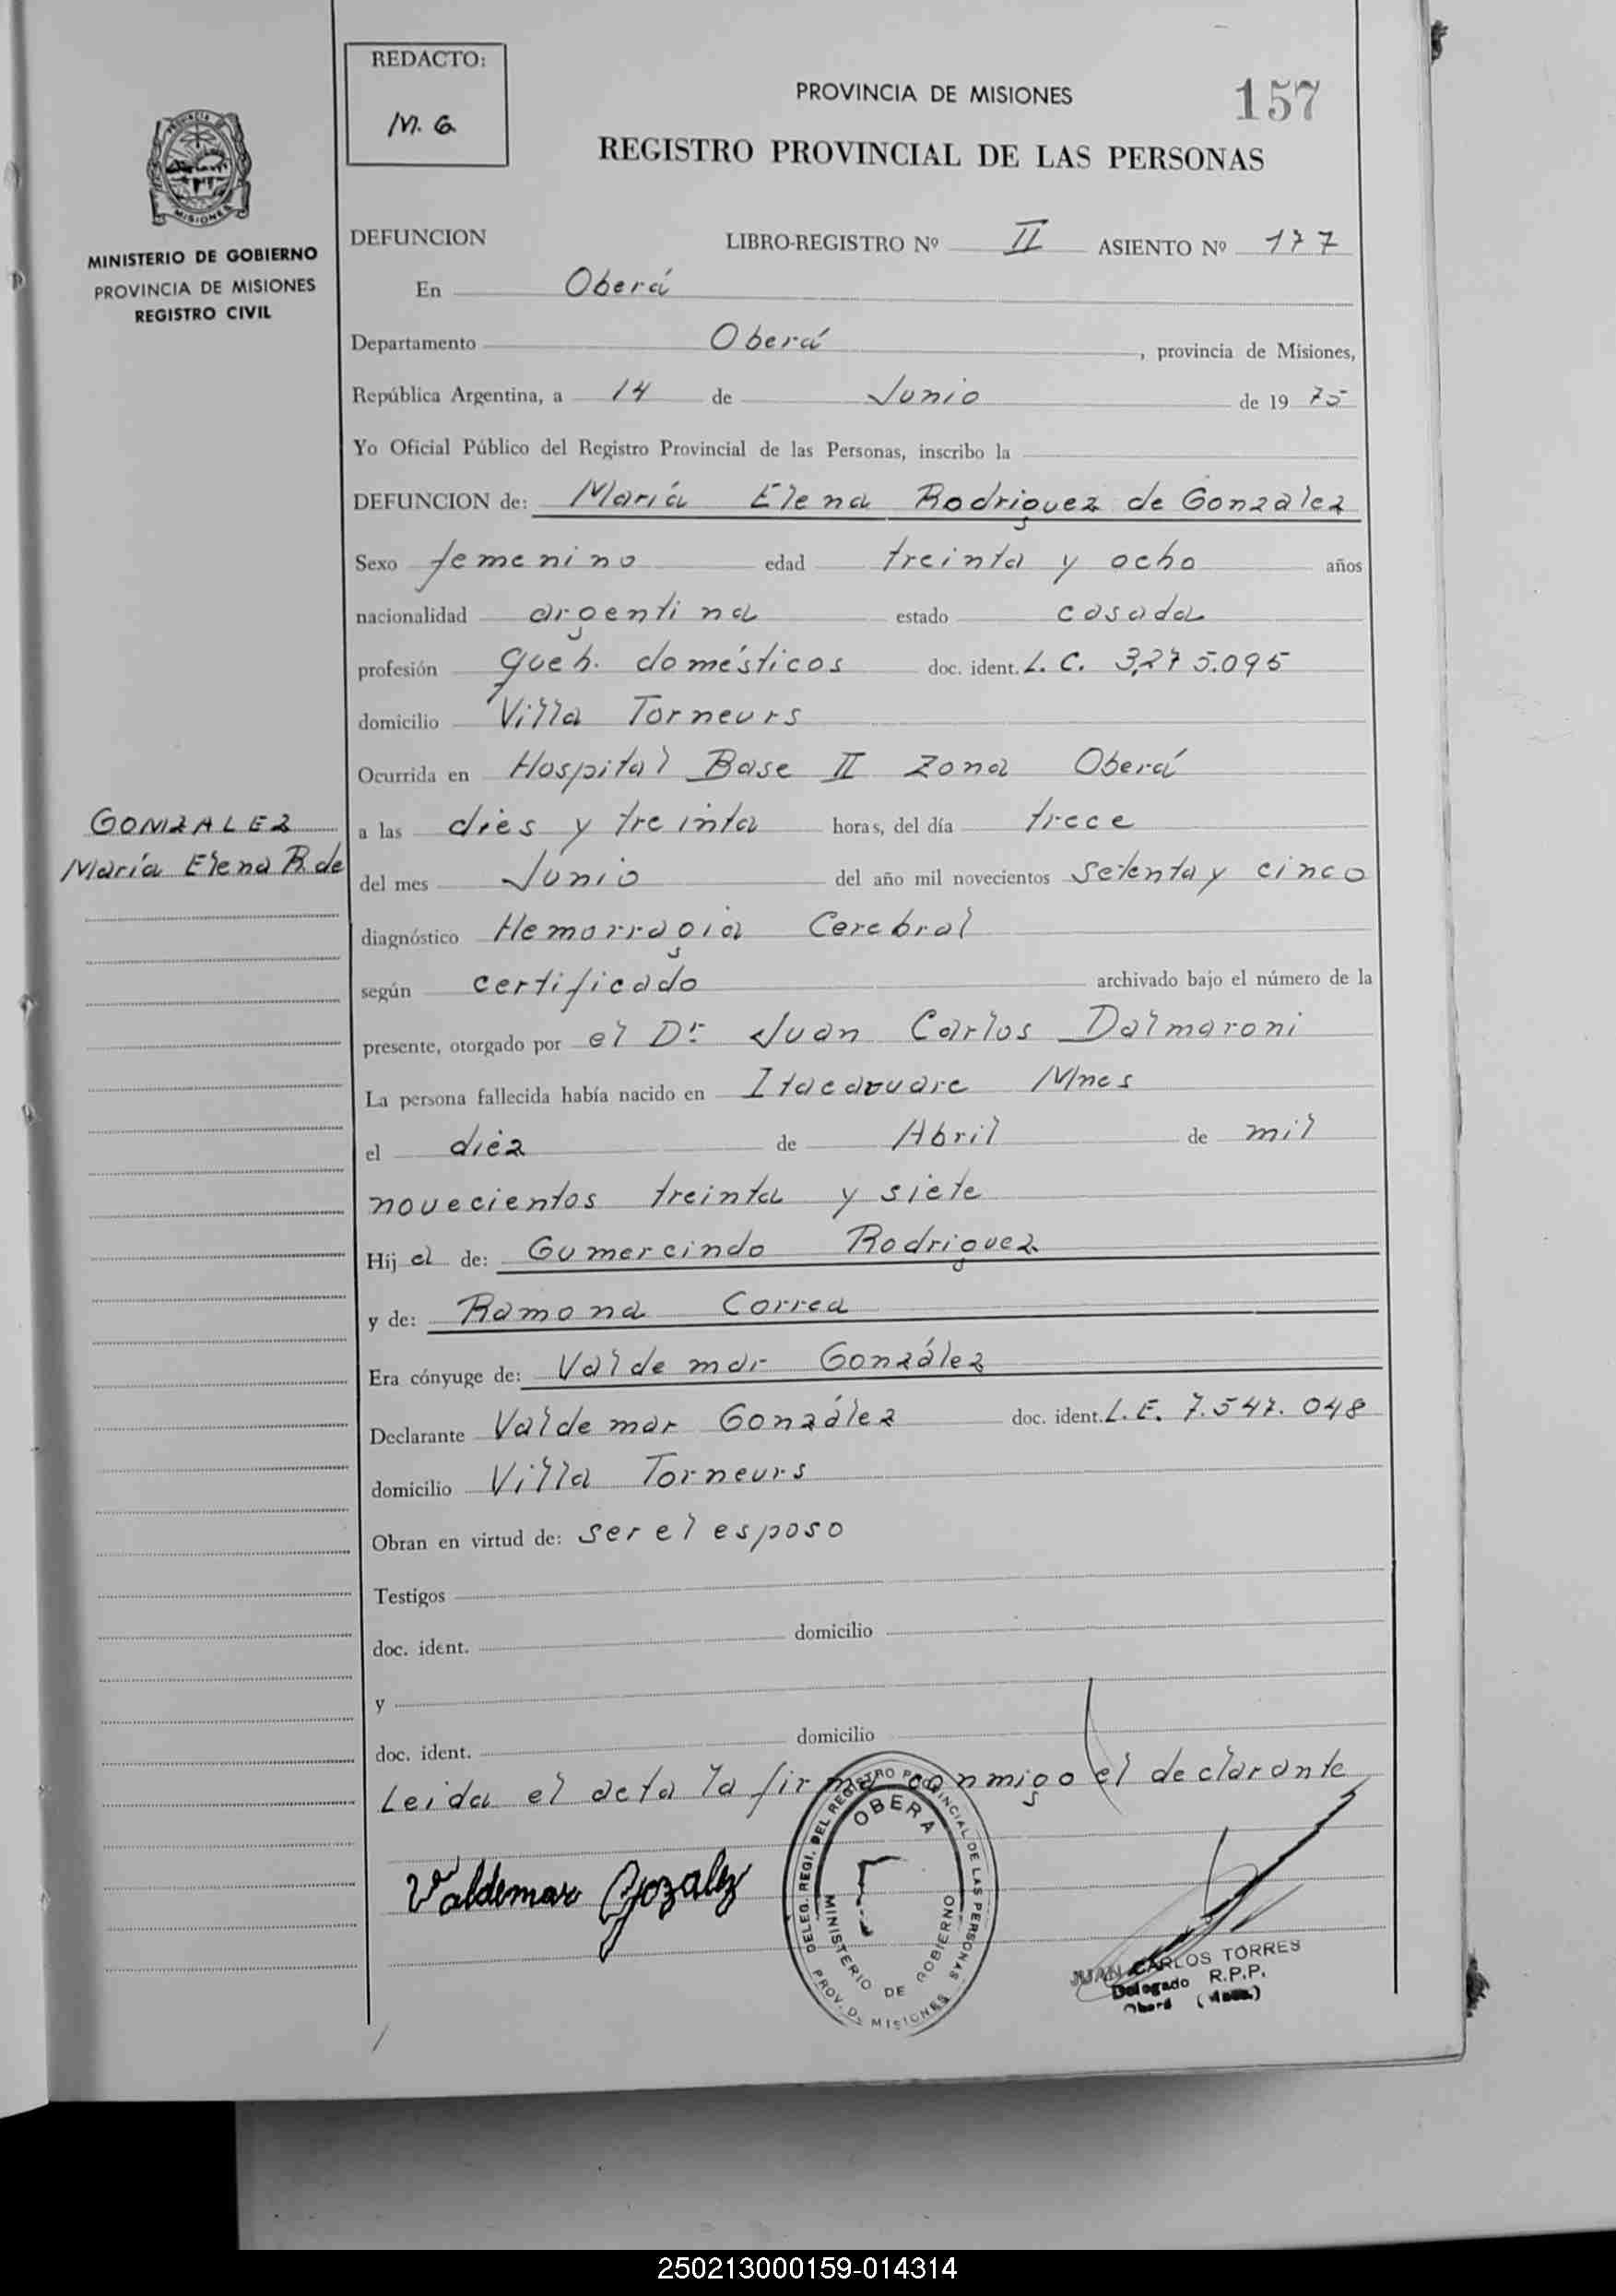 REDACTO:
M. G.
PROVINCIA DE MISIONES
157
REGISTRO PROVINCIAL DE LAS PERSONAS
MISIONES
MINISTERIO DE GOBIERNO
PROVINCIA DE MISIONES
REGISTRO CIVIL
DEFUNCION LIBRO-REGISTRO Nº II ASIENTO Nº 177
En Oberá
Departamento Oberá, provincia de Misiones,
República Argentina, a 14 de Junio de 19 75
Yo Oficial Público del Registro Provincial de las Personas, inscribo la
DEFUNCION de: María Elena Rodriguez de Gonzalez
Sexo femenino edad treinta y ocho años
nacionalidad argentina estado casada
profesión queh. domésticos doc. ident. L. C. 3,275.095
domicilio Villa Torneurs
Ocurrida en Hospital Base II Zona Oberá
a las dies y treinta horas, del día trece
GONZALEZ
María Elena R. de
del mes Junio del año mil novecientos setenta y cinco
diagnóstico Hemorragia Cerebral
según certificado archivado bajo el número de la
presente, otorgado por el Dr Juan Carlos Dalmaroni
La persona fallecida había nacido en Itacaruare Mnes
el diez de Abril de mil
novecientos treinta y siete
Hij a de: Gumercindo Rodriguez
y de: Ramona Correa
Era cónyuge de: Valdemar González
Declarante Valdemar González doc. ident. L. E. 7.547.048
domicilio Villa Torneurs
Obran en virtud de: ser el esposo
Testigos
doc. ident. domicilio
y
doc. ident. domicilio
Leida el acta la firma conmigo el declarante
Valdemar Gozalez
DELEG. REGI. DEL REGISTRO PROVINCIAL DE LAS PERSONAS
OBERA
MINISTERIO DE GOBIERNO
PROV. DE MISIONES
JUAN CARLOS TORRES
Delegado R.P.P.
Oberá (Mnes.)
250213000159-014314